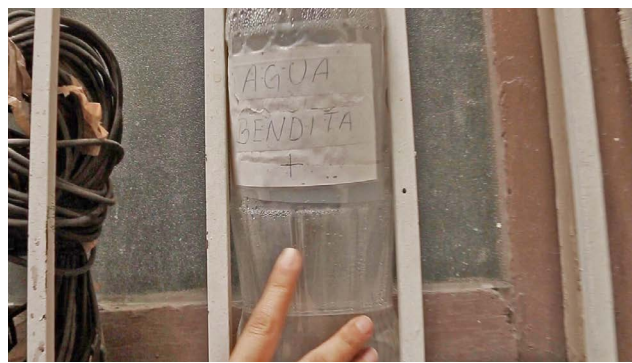 AGUA
BENDITA
+